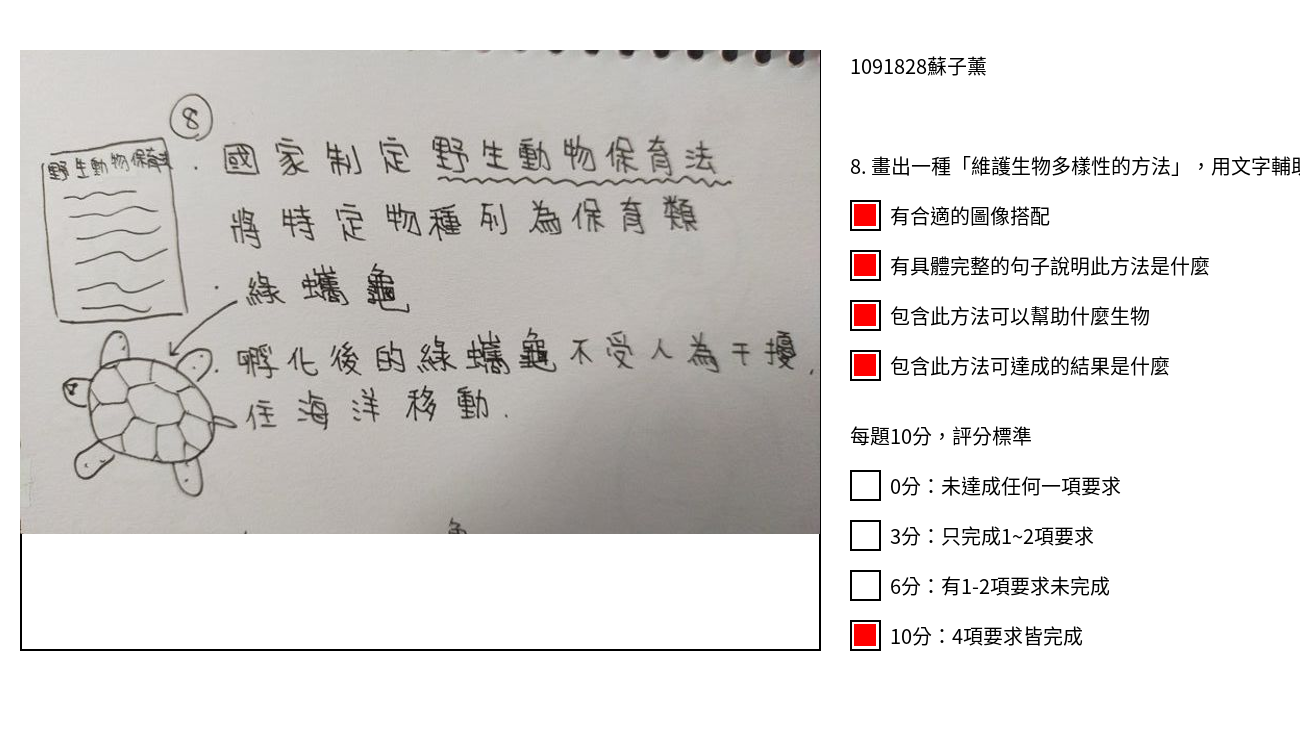 8
野生動物保育法
國家制定野生動物保育法
將特定物種列為保育類
綠蠵龜
孵化後的綠蠵龜不受人為干擾,
往海洋移動.
1091828蘇子薰
8. 畫出一種「維護生物多樣性的方法」，用文字輔助
有合適的圖像搭配
有具體完整的句子說明此方法是什麼
包含此方法可以幫助什麼生物
包含此方法可達成的結果是什麼
每題10分，評分標準
0分：未達成任何一項要求
3分：只完成1~2項要求
6分：有1-2項要求未完成
10分：4項要求皆完成